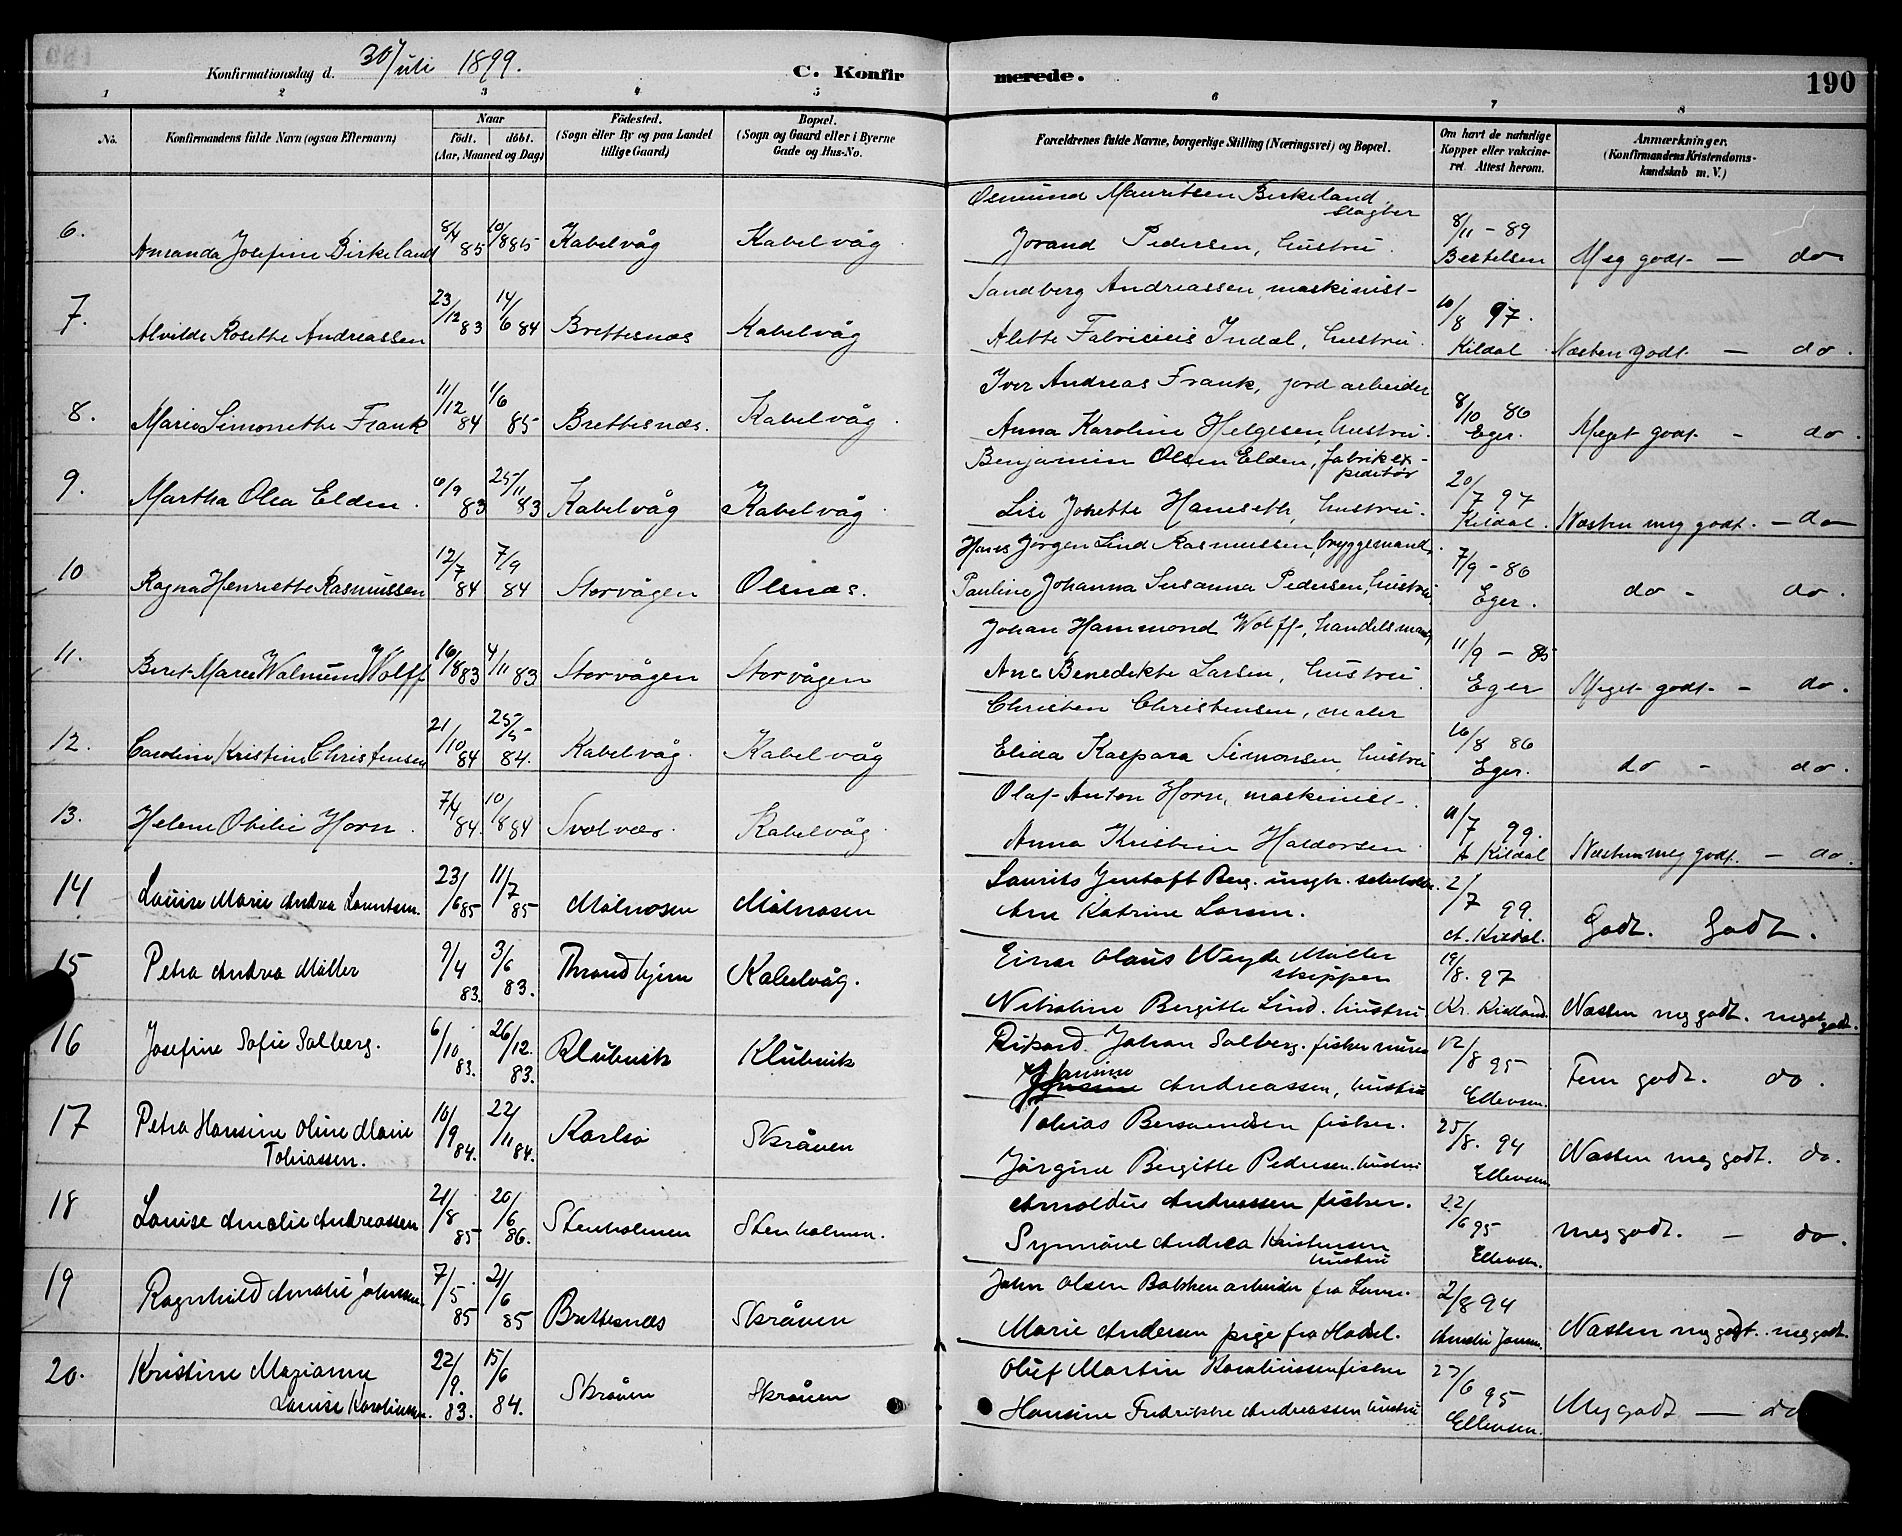 Konfirmationsdag d. 30 Juli 1899.
C. Konfirmerede.
190
1 2 3 4 5 6 7 8
No.
Konfirmandens fulde Navn (ogsaa Efternavn)
Naar
födt. döbt.
(Aar, Maaned og Dag)
Födested.
(Sogn eller By og paa Landet
tillige Gaard)
Bopæl.
(Sogn og Gaard eller i Byerne
Gade og Hus-No.
Forældrenes fulde Navne, borgerlige Stilling (Næringsvei) og Bopæl.
Om havt de naturlige
Kopper eller vakcine-
ret. Attest herom.
Anmærkninger.
(Konfirmandens Kristendoms-
kundskab m. V.)
6. Amanda Josefine Birkeland 8/4 85 10/8 85 Kabelvåg Kabelvåg
Osmund Mauritsen Birkeland, slagter
Jorand Pedersen, hustru.
8/11 - 89 Bertelsen Meg godt - do
7. Alvilde Rosette Andreassen 23/12 83 14/6 84 Brettesnæs Kabelvåg
Sandberg Andreassen, maskinist
Alette Fabricius Indal, hustru.
10/8 97. Kildal Næsten godt - do.
8. Marie Simonette Frank 11/12 84 1/6 85 Brettesnæs. Kabelvåg
Iver Andreas Frank, jordarbeider
Anna Karoline Helgesen, hustru.
8/10 86 Eger. Meget godt - do.
9. Martha Olea Elden. 6/9 83 25/11 83 Kabelvåg Kabelvåg
Benjamin Olsen Elden, fabrikex-
peditør
Lise Jonette Hamseth, hustru.
20/7 97 Kildal. Næsten meg godt. - do
10 Ragna Henriette Rasmussen 12/7 84 7/9 84 Storvågen Olsnæs.
Hans Jørgen Lind Rasmussen, bryggemand.
Pauline Johanna Susanna Pedersen, hustru.
7/9 - 86 Eger. do - do.
11. Beret Marie Walnum Wolff 16/8 83 4/11 83 Storvågen Storvågen
Johan Hammond Wolff, handelsmand
Ane Benedikte Larsen, hustru
11/9 - 85 Eger Meget godt - do.
12. Caroline Kristine Christensen 21/10 84 25/5 84. Kabelvåg. Kabelvåg
Christen Christensen, maler
Elida Kaspara Simonsen, hustru
16/8 86 Eger. do - do.
13. Helene Otilie Horn. 7/4 84. 10/8 84 Svolvær. Kabelvåg
Olaf Anton Horn, maskinist.
Anna Kristine Haldorsen
11/7 99. A Kildal Næsten meg godt. - do.
14 Louise Marie Andrea Lauritsen. 23/6 85 11/7 85 Mølnosen Mølnosen
Laurits Jentoft Berg.
Ane Katrine Larsen.
2/7 99. A. Kildal. Godt. Godt.
15 Petra Andrea Müller 9/4 83. 3/6 83. Throndhjem Kabelvåg.
Einar Olaus Weyde Müller
skipper
Nikoline Bergitte Lind. hustru
19/8. 97 Kr. Næsten meg godt. meget godt.
16 Josefine Sofie Solberg. 6/10 83. 26/12. 83. Klubvik Klubvik
Rikard Johan Solberg. fisker
Hansine Andreassen, hustru
12/8 95 Ellevsen. Tem godt. do.
17 Petra Hansine Oline Marie
Tobiassen. 10/9 84. 22/11 84. Karlsö Skråven
Tobias Bersvendsen fisker.
Jørgine Bergitte Pedersen. hustru
25/8. 94 Ellevsen Næsten meg godt. do.
18 Louise Amalie Andreassen 21/8 85 20/6 86. Stenholmen Stenholmen.
Arnoldus Andreassen fisker.
Synnöve Andrea Kristensen
hustru
22/6 95 Ellevsen. meg godt. - do.
19 Ragnhild Amalie Johnsen. 7/5 85 21/6 85 Brettesnæs Skråven
John Olsen Bakken arbeider fra
Marie Andersen pige fra Hadsel.
2/8 94 Næsten meg godt. meg godt.
20. Kristine Marianne
Louise Karoliussen. 22/9. 83. 15/6 84. Skråven Skråven
Oluf Martin Karoliussen fisker
Hansine Fredrikke Andreassen hustru
27/6 95 Ellevsen. Meg godt - do